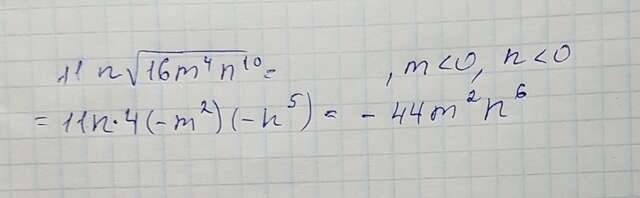 11 n√(16m⁴n¹⁰) = , m<0, n<0
= 11n·4(-m²)(-n⁵) = -44m²n⁶